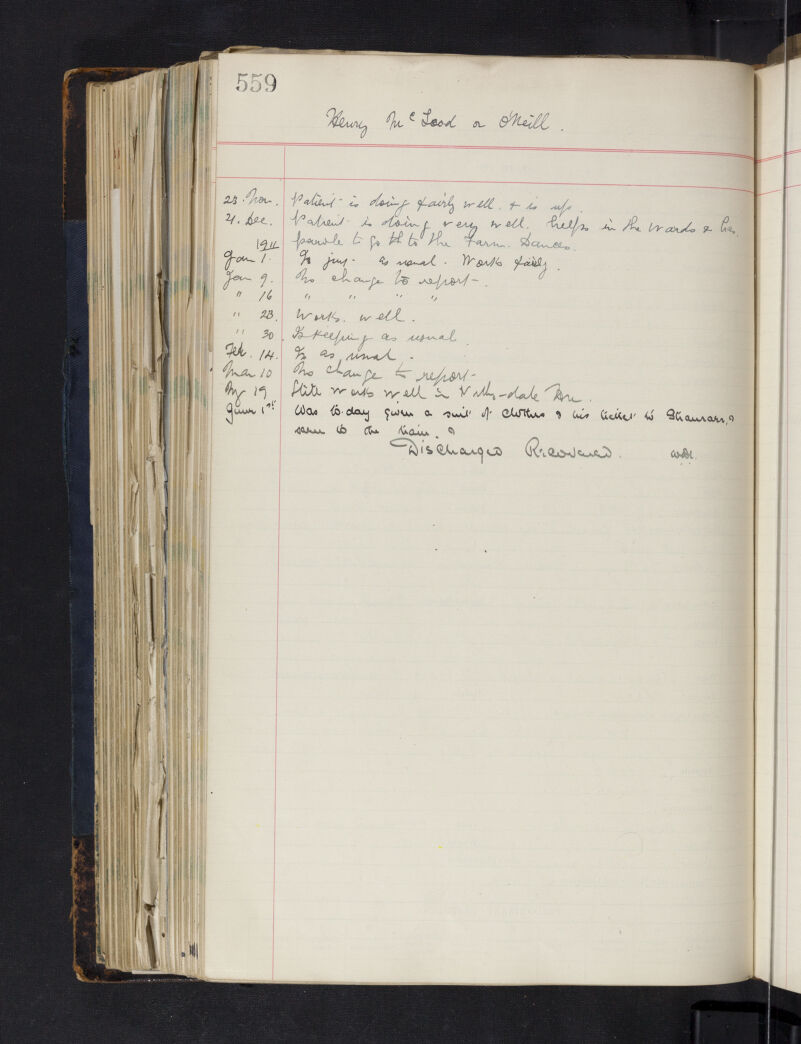 559
Henry McLeod or O'Neill.
23. Nov. Patient is doing fairly well. & is up.
4. Dec. Patient is doing very well. helps in the wards & has
1911 parole to go to the Farm. Dances.
Jan 1. Is just as usual. Works fairly.
Jan 9. No change to report.
" 16 " " " "
" 23. Works well.
" 30. Is keeping as usual
Feb. 14. Is as usual.
Mar 10 No change to report
My 19 Still works well in
June 1st Was to-day given a suit of clothes & his ticket to Stranraer, &
seen to the train. &
Discharged Recovered.